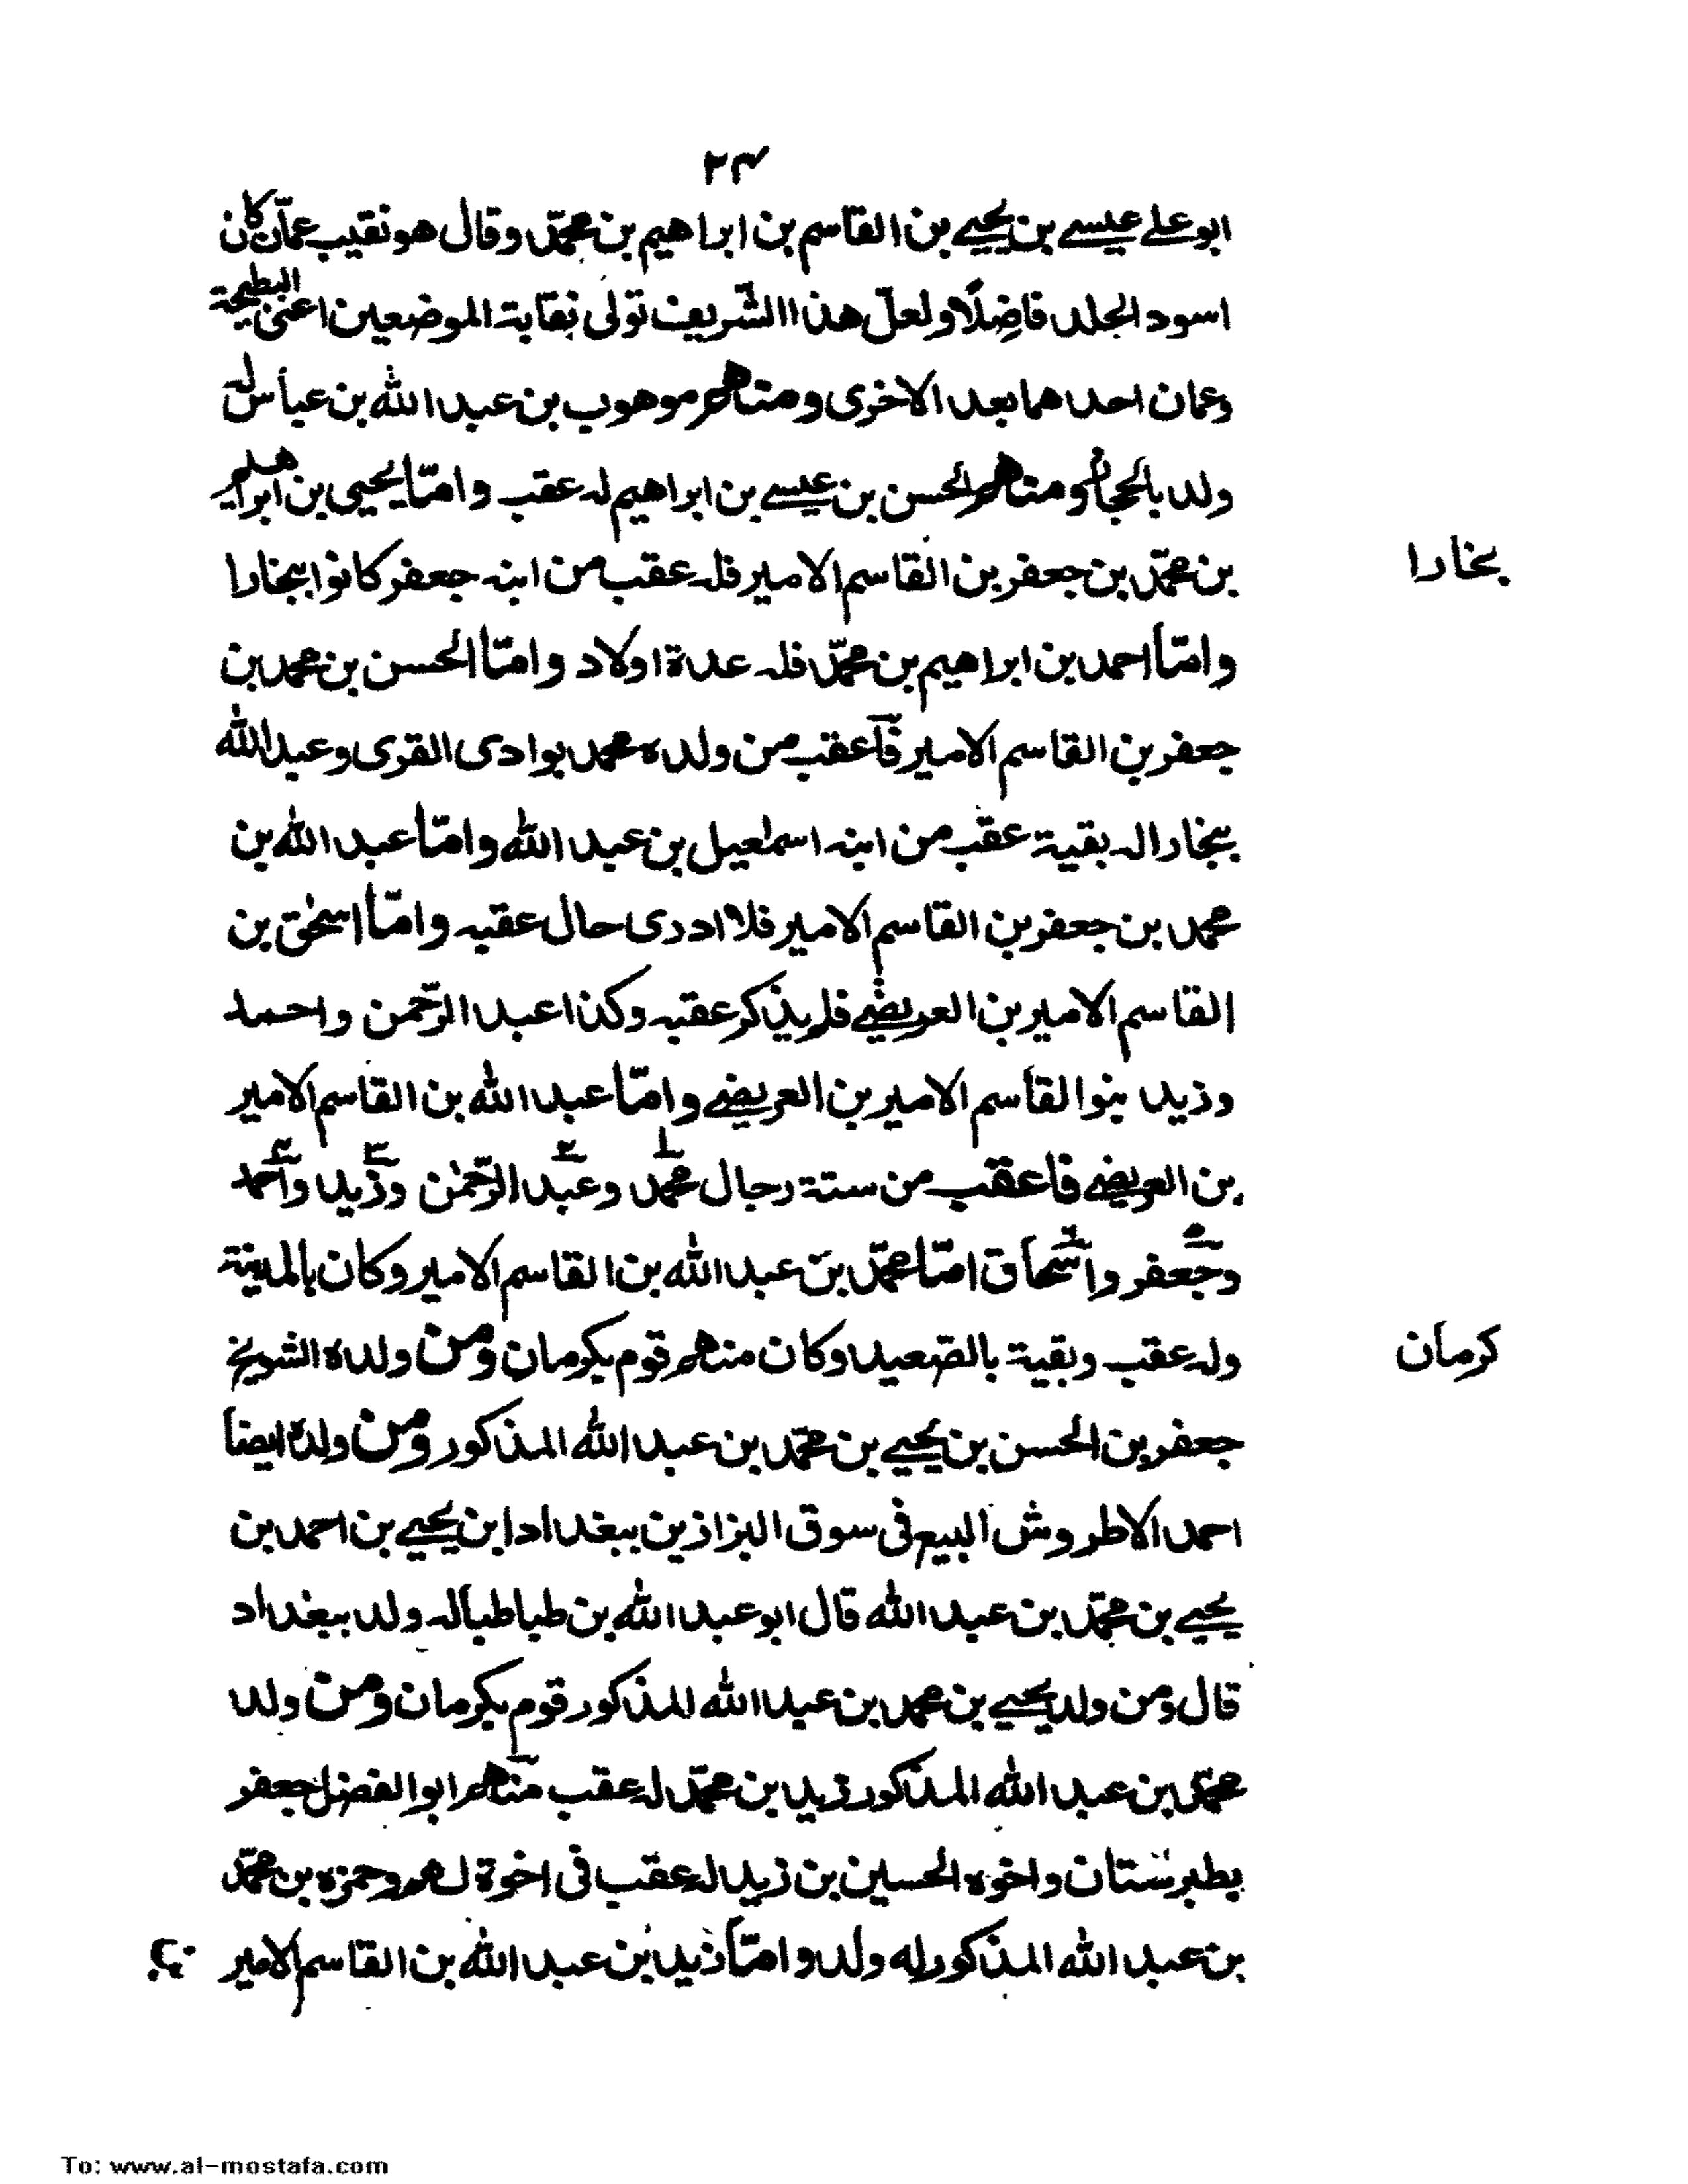 ٢٤
ابو علے عیسے بن یحیے بن القاسم بن ابراهیم بن محمّد وقال هو نقیب عمّان کان
اسود الجلد فاضِلًا ولعلّ هذا الشّریف تولی نقابة الموضعین اعنی البطیحة
وعمان احداهما بعد الاخری ومنهم موهوب بن عبد الله بن عباس له
ولد بالحجاز ومنهم الحسن بن عیسے بن ابراهیم له عقب وامّا یحیی بن ابراهیم
بن محمّد بن جعفر بن القاسم الامیر فله عقب من ابنه جعفر کانوا ببخارا
بخارا
وامّا احمد بن ابراهیم بن محمّد فله عدة اولاد وامّا الحسن بن محمد بن
جعفر بن القاسم الامیر فاعقب من ولده محمد بوادی القری وعبد الله
ببخارا له بقیة عقب من ابنه اسمٰعیل بن عبد الله وامّا عبد الله بن
محمد بن جعفر بن القاسم الامیر فلا ادری حال عقبه وامّا اسحٰق بن
القاسم الامیر بن العریضے فلم یذکر عقبه وکذا عبد الرّحمن واحمد
وزید بنوا القاسم الامیر بن العریضے وامّا عبد الله بن القاسم الامیر
بن العریضے فاعقب من ستة رجال محمّد وعبد الرّحمٰن وزید واحمد
وجعفر واسحاق امّا محمّد بن عبد الله بن القاسم الامیر وکان بالمدینة
وله عقب وبقیة بالصّعید وکان منهم قوم بکرمان ومن ولده الشویخ
کرمان
جعفر بن الحسن بن یحیے بن محمّد بن عبد الله المذکور ومن ولده ایضا
احمد الاطروش البیع فی سوق البزازین ببغداد ابن یحیے بن احمد بن
یحیے بن محمّد بن عبد الله قال ابو عبد الله بن طباطبا له ولد ببغداد
قال ومن ولد یحیے بن محمد بن عبد الله المذکور قوم بکرمان ومن ولد
محمّد بن عبد الله المذکور زید بن محمّد له عقب منهم ابو الفضل جعفر
بطبرستان واخوه الحسین بن زید له عقب فی اخوة لهم وحمزه بن محمّد
بن عبد الله المذکور له ولد وامّا زید بن عبد الله بن القاسم الامیر
To: www.al-mostafa.com